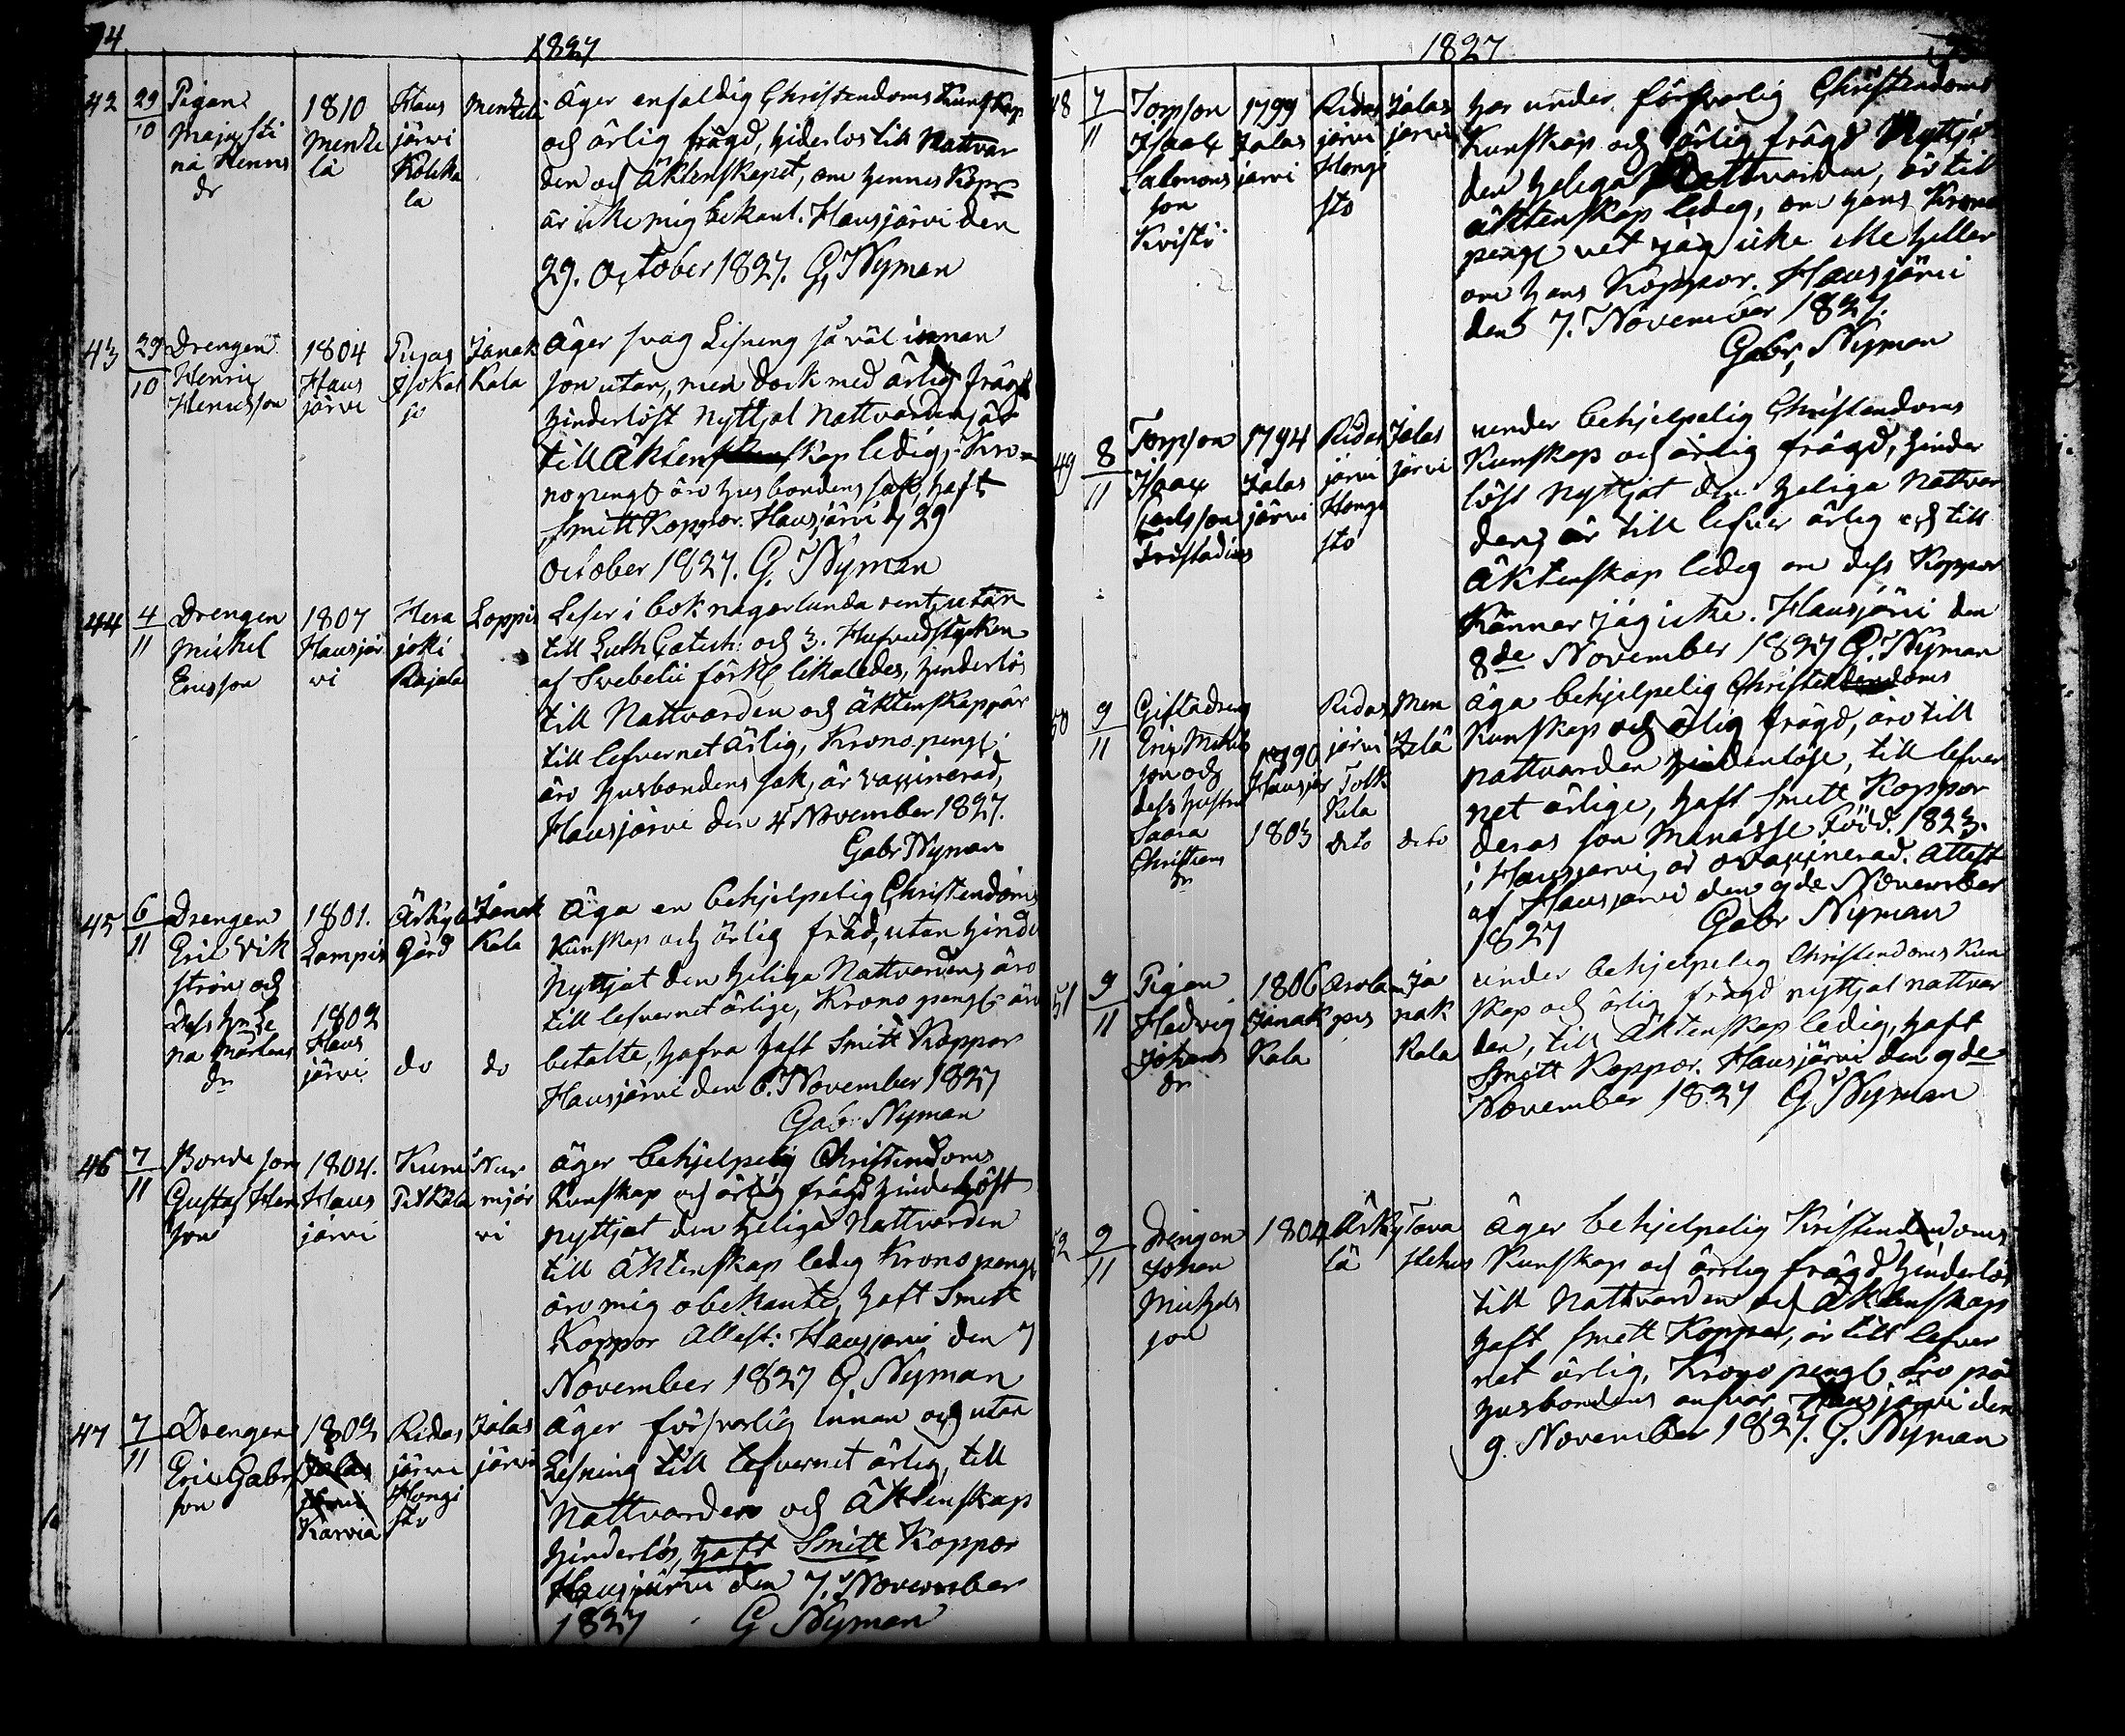 94
1827
42 29/10 Pigan Maja Sti na Henrics dr
1810 Mentze lä
Haus järvi Kolcka la
Mentzele
Äger enfaldig Christendoms Kunskap
och ärlig frägd, hiderlös till Nattvar
den och Äktenskapet, om hennes Kopp:
är icke mig bekant. Hausjärvi den
29. October 1827. G. Nyman
43 29/10 Drengen Henric Henricsson
1804 Haus järvi
Janak Kala
Äger svag Läsning så väl innan
som utan, men dock med ärlig frägd
hinderlöst Nyttjat Nattvarden, är
till Äktenskap ledig, Kro
nopengr äro husbondens sak, haft
Smitt Koppor. Hausjärvi d 29
October 1827. G. Nyman
44 4/11 Drengen Mickel Ericsson
1807 Hausjär vi
Hera joki Rajala
Loppis
Leser i bok någorlunda rent, utan
till Luth. Catech: och 3. Hufvudstycken
af Svebelii förkl likaledes, hinderlös
till Nattvarden och Äktenskap, är
till lefvernet ärlig, Krono pengr
äro husbondens sak, är vaccinerad,
Hausjärvi den 4 November 1827.
Gabr Nyman
45 6/11 Drengen Eric Vik ström och Dess hustru
na Mårtens dr
1801. Lampis
1802 Haus järvi
Gård
do
Janak Kala
do
Äga en behjelpelig Christendoms
Kunskap och ärlig fräd, utan hinder
Nyttjat den heliga Nattvarden, äro
till lefvernet ärlige, Krono pengr äro
betalte, hafva haft Smitt Koppor
Hausjärvi den 6. November 1827
Gab. Nyman
46 7/11 Bonde son Gustaf Hen son
1804. Haus järvi
Kumi Pitkälä
Nur mijär vi
äger behjelpelig Christendoms
Kunskap och ärlig frägd hinderlöst
nyttjat den heliga Nattvarden
till Äktenskap ledig Krono pengr
äro mig obekante, haft Smitt
Koppor Attest: Hausjärvi den 7
November 1827 G. Nyman
47 7/11 Drengen Eric Gabr. son
1802 Jalas järvi Karvia
Ridas järvi Hongi sto
Jalas järvi
äger försvarlig innan och utan
Lesning till lefvernet ärlig, till
Nattvarden och Äktenskap
hinderlös, haft Smitt Koppor
Hausjärvi den 7. November
1827 G Nyman
1827
48 7/11 Torpson Isaac Salomons son
1799 Jalas järvi
Ridas järvi Hongi sto
Jalas järvi
har under försvarlig Christendoms
Kunskap och ärlig frägd Nyttja
den heliga Nattvarden, är till
äktenskap ledig, om hans Krono
pengr vet jag icke elle heller
om hans Koppor. Hausjärvi
den 7. November 1827.
Gabr, Nyman
49 8/11 Torpson Isaac
1794 Jalas järvi
Ridas järvi Hongi sto
Jalas järvi
under behjelpelig Christendoms
Kunskap och ärlig frägd, hinder
löst nyttjat den heliga Nattvar
den, är till lefver ärlig och till
Äktenskap ledig om dess Koppor
Känner jag icke. Hausjärvi den
8de November 1827 G. Nyman
50 9/11 Gift dreng Eric Mikels son och dess hustru Saara Christians dr
1790 Hausjär
1803
Ridas järvi Tolk Kila
dito
Men tzelä
dito
äga behjelpelig Christendoms
Kunskap och ärlig frägd, äro till
nattvarden hinderlöse, till lefver
net ärlige, haft Smitt Koppor
deras son Manasse född. 1823.
i Hausjärvi, är ovaccinerad. Attest
af Hausjärvi den 9de November
1827 Gabr Nyman
51 9/11 Pigan Hedvig Johans dr
1806 Janak Kala
Ja nak Kala
under behjelpelig Christendoms Kun
skap och ärlig frägd nyttjat nattvar
den, till Äktenskap ledig, haft
Smitt Koppor. Hausjärvi den 9de
November 1827 G Nyman
52 9/11 Drengen Johan Michels son
1804
Ärky lä
Tava stehus
Äger behjelpelig Kristendoms
Kunskap och ärlig frägd hinderlös
till Nattvarden och äktenskap
haft smitt Koppor, är till lefver
net ärlig, Krono pengr äro på
husbondens ansvar Hausjärvi den
9. November 1827. G. Nyman